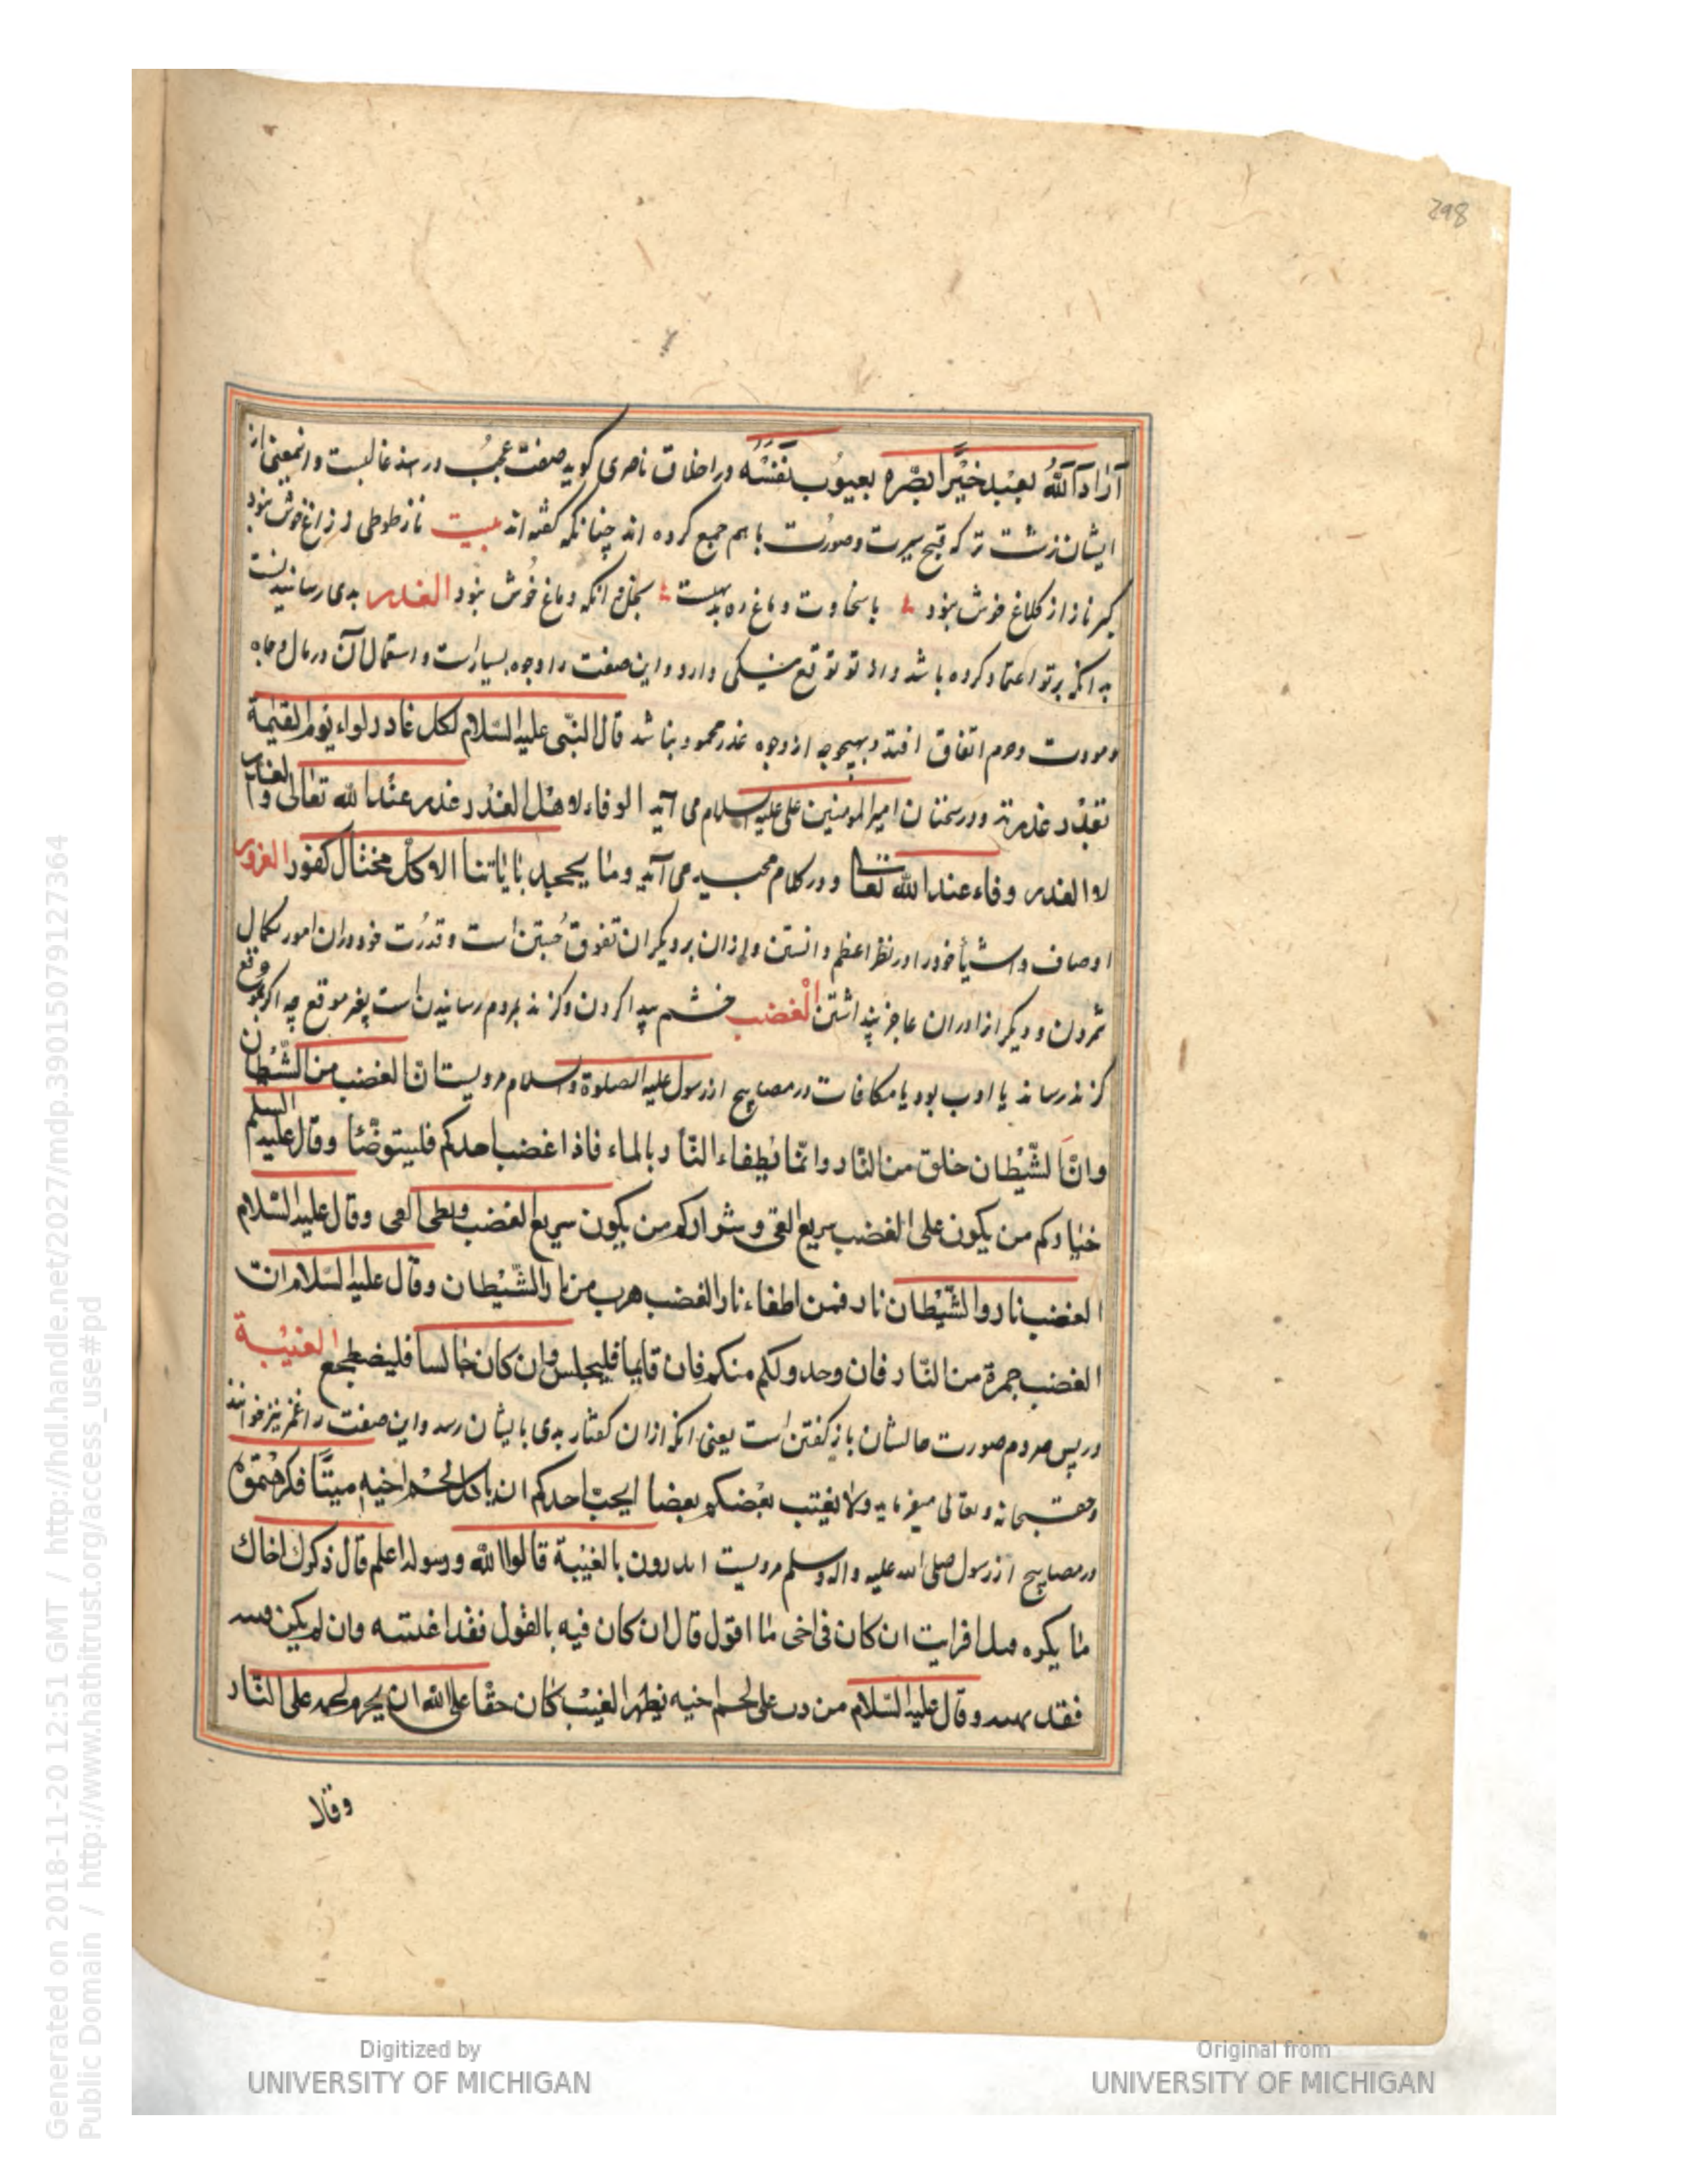 298
اراد الله بعبد خیرا بصره بعیوب نفسه در اخلاق ناصری کوید صفت عجب در سند غالبست و اینمعنی از
ایشان زشت تر که قبح سیرت وصورت با هم جمع کرده اند چنانکه کفته اند بیت ناز طوطی ز زاغ خوش نبود
کبر ناز از کلاغ خوش نبود با سخاوت دماغ ده بدیست بخل انکه دماغ خوش نبود الغدر بدی رسانیدنست
به انکه بر تو اعتماد کرده باشد و از تو توقع نیکی دارد و این صفت را وجوه بسیارست و استمال آن در مال و جاه
ومودت وحرم اتفاق افتد و بهیچوجه از وجوه غدر محمود نباشد قال النبی علیه السلام لکل غادر لواء یوم القیمة
بقدر غدرته ودر سخنان امیر المومنین علی علیه السلام می آید الوفاء لاهل الغدر غدر عند الله تعالی و
لاا لغدر وفاء عند الله تعا ودر کلام مجید می آید وما یجحد بایاتنا الا کل مختال کفور الغرور
اوصاف واشیأ خود را در نظر اعظم دانستن و از ان بر دیکران تفوق جستن است و قدرت خود در ان امور بکمال
شمردن و دیکر انرا دران عاجز پنداشتن الغضب خشم پیدا کردن وکزند بمردم رسانیدن است بغیر موقع چه اکر بموقع
کزند رساند یا ادب بود یا مکافات در مصابیح از رسول علیه الصلوة والسلام مرویست ان الغضب من الشیطان
وان الشیطان خلق من النار وانما یطفاء النار بالماء فاذا اغضب احدکم فلیتوضئا وقال علیه السلم
خیارکم من یکون علی الغضب سریع الفی وشرارکم من یکون سریع الغضب وبطی الفی وقال علیه السلام
الغضب نار والشیطان نار فمن اطفاء نار الغضب هرب من نار الشیطان وقال علیه السلام ان
الغضب جمرة من النار فان وجد ولکم منکم فان قایما فلیجلس وان کان جالسا فلیضطجع الغیبة
در پس مردم صورت حالشان باز کفتن است یعنی انکه ازان کفتار بدی بایشان رسد واین صفت را غمز نیز خوانند
وحق سبحانه وتعالی میفرماید ولا یغتب بعضکم بعضا ایحب احدکم ان یاکل لحم اخیه میتا فکرهتموه
در مصابیح از رسول صلی الله علیه واله وسلم مرویست اتدرون بالغیبة قالوا الله ورسوله اعلم قال ذکرک اخاک
ما یکره قیل افرایت ان کان فی اخی ما اقول قال ان کان فیه بالقول فقد اغتبته وان لم یکن فیه
فقد بهته وقال علیه السلام من ذب علی لحم اخیه بظهر الغیب کان حقا علی الله ان یحرم لحمه علی النار
وقالا
Digitized by
UNIVERSITY OF MICHIGAN
Original from
UNIVERSITY OF MICHIGAN
Generated on 2018-11-20 12:51 GMT / http://hdl.handle.net/2027/mdp.39015079127364
Public Domain / http://www.hathitrust.org/access_use#pd